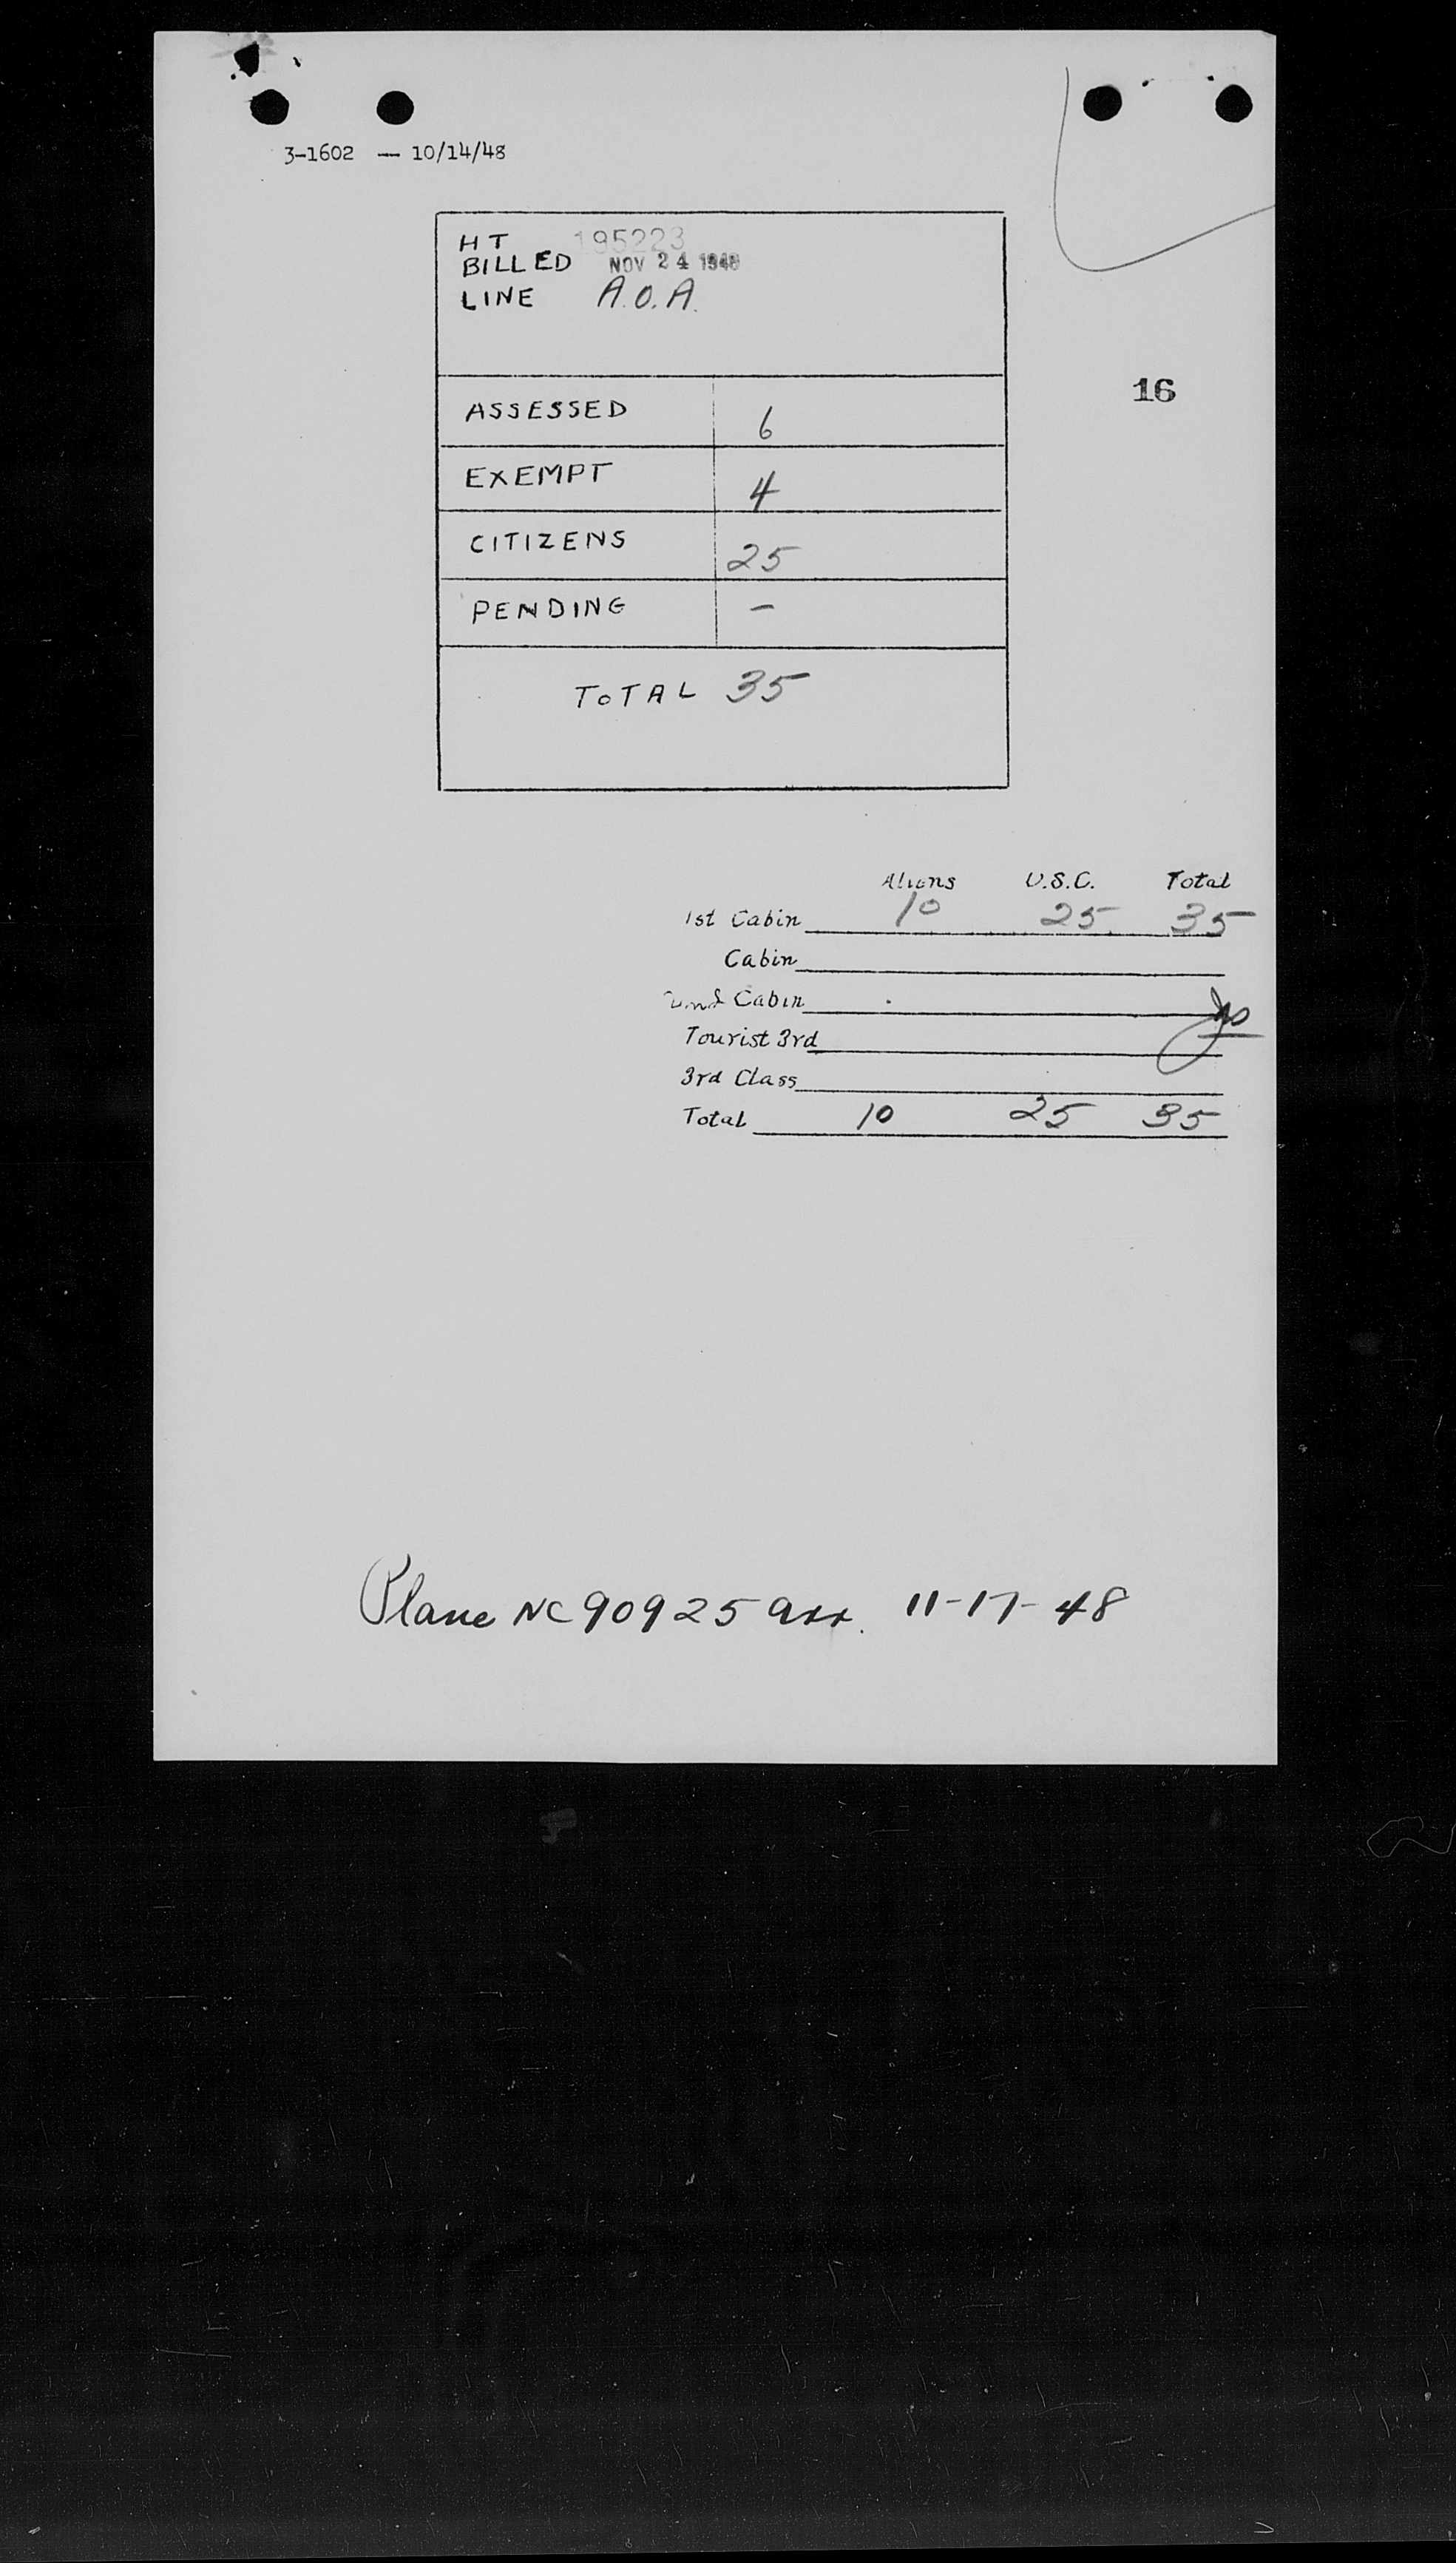 3-1602 — 10/14/48
HT 195223
BILLED NOV 24 1948
LINE A.O.A.
16
ASSESSED 6
EXEMPT 4
CITIZENS 25
PENDING —
TOTAL 35
Aliens U.S.C. Total
1st Cabin 10 25 35
Cabin
Cabin
Tourist 3rd
3rd Class
Total 10 25 35
Plane NC 90925 arr. 11-17-48